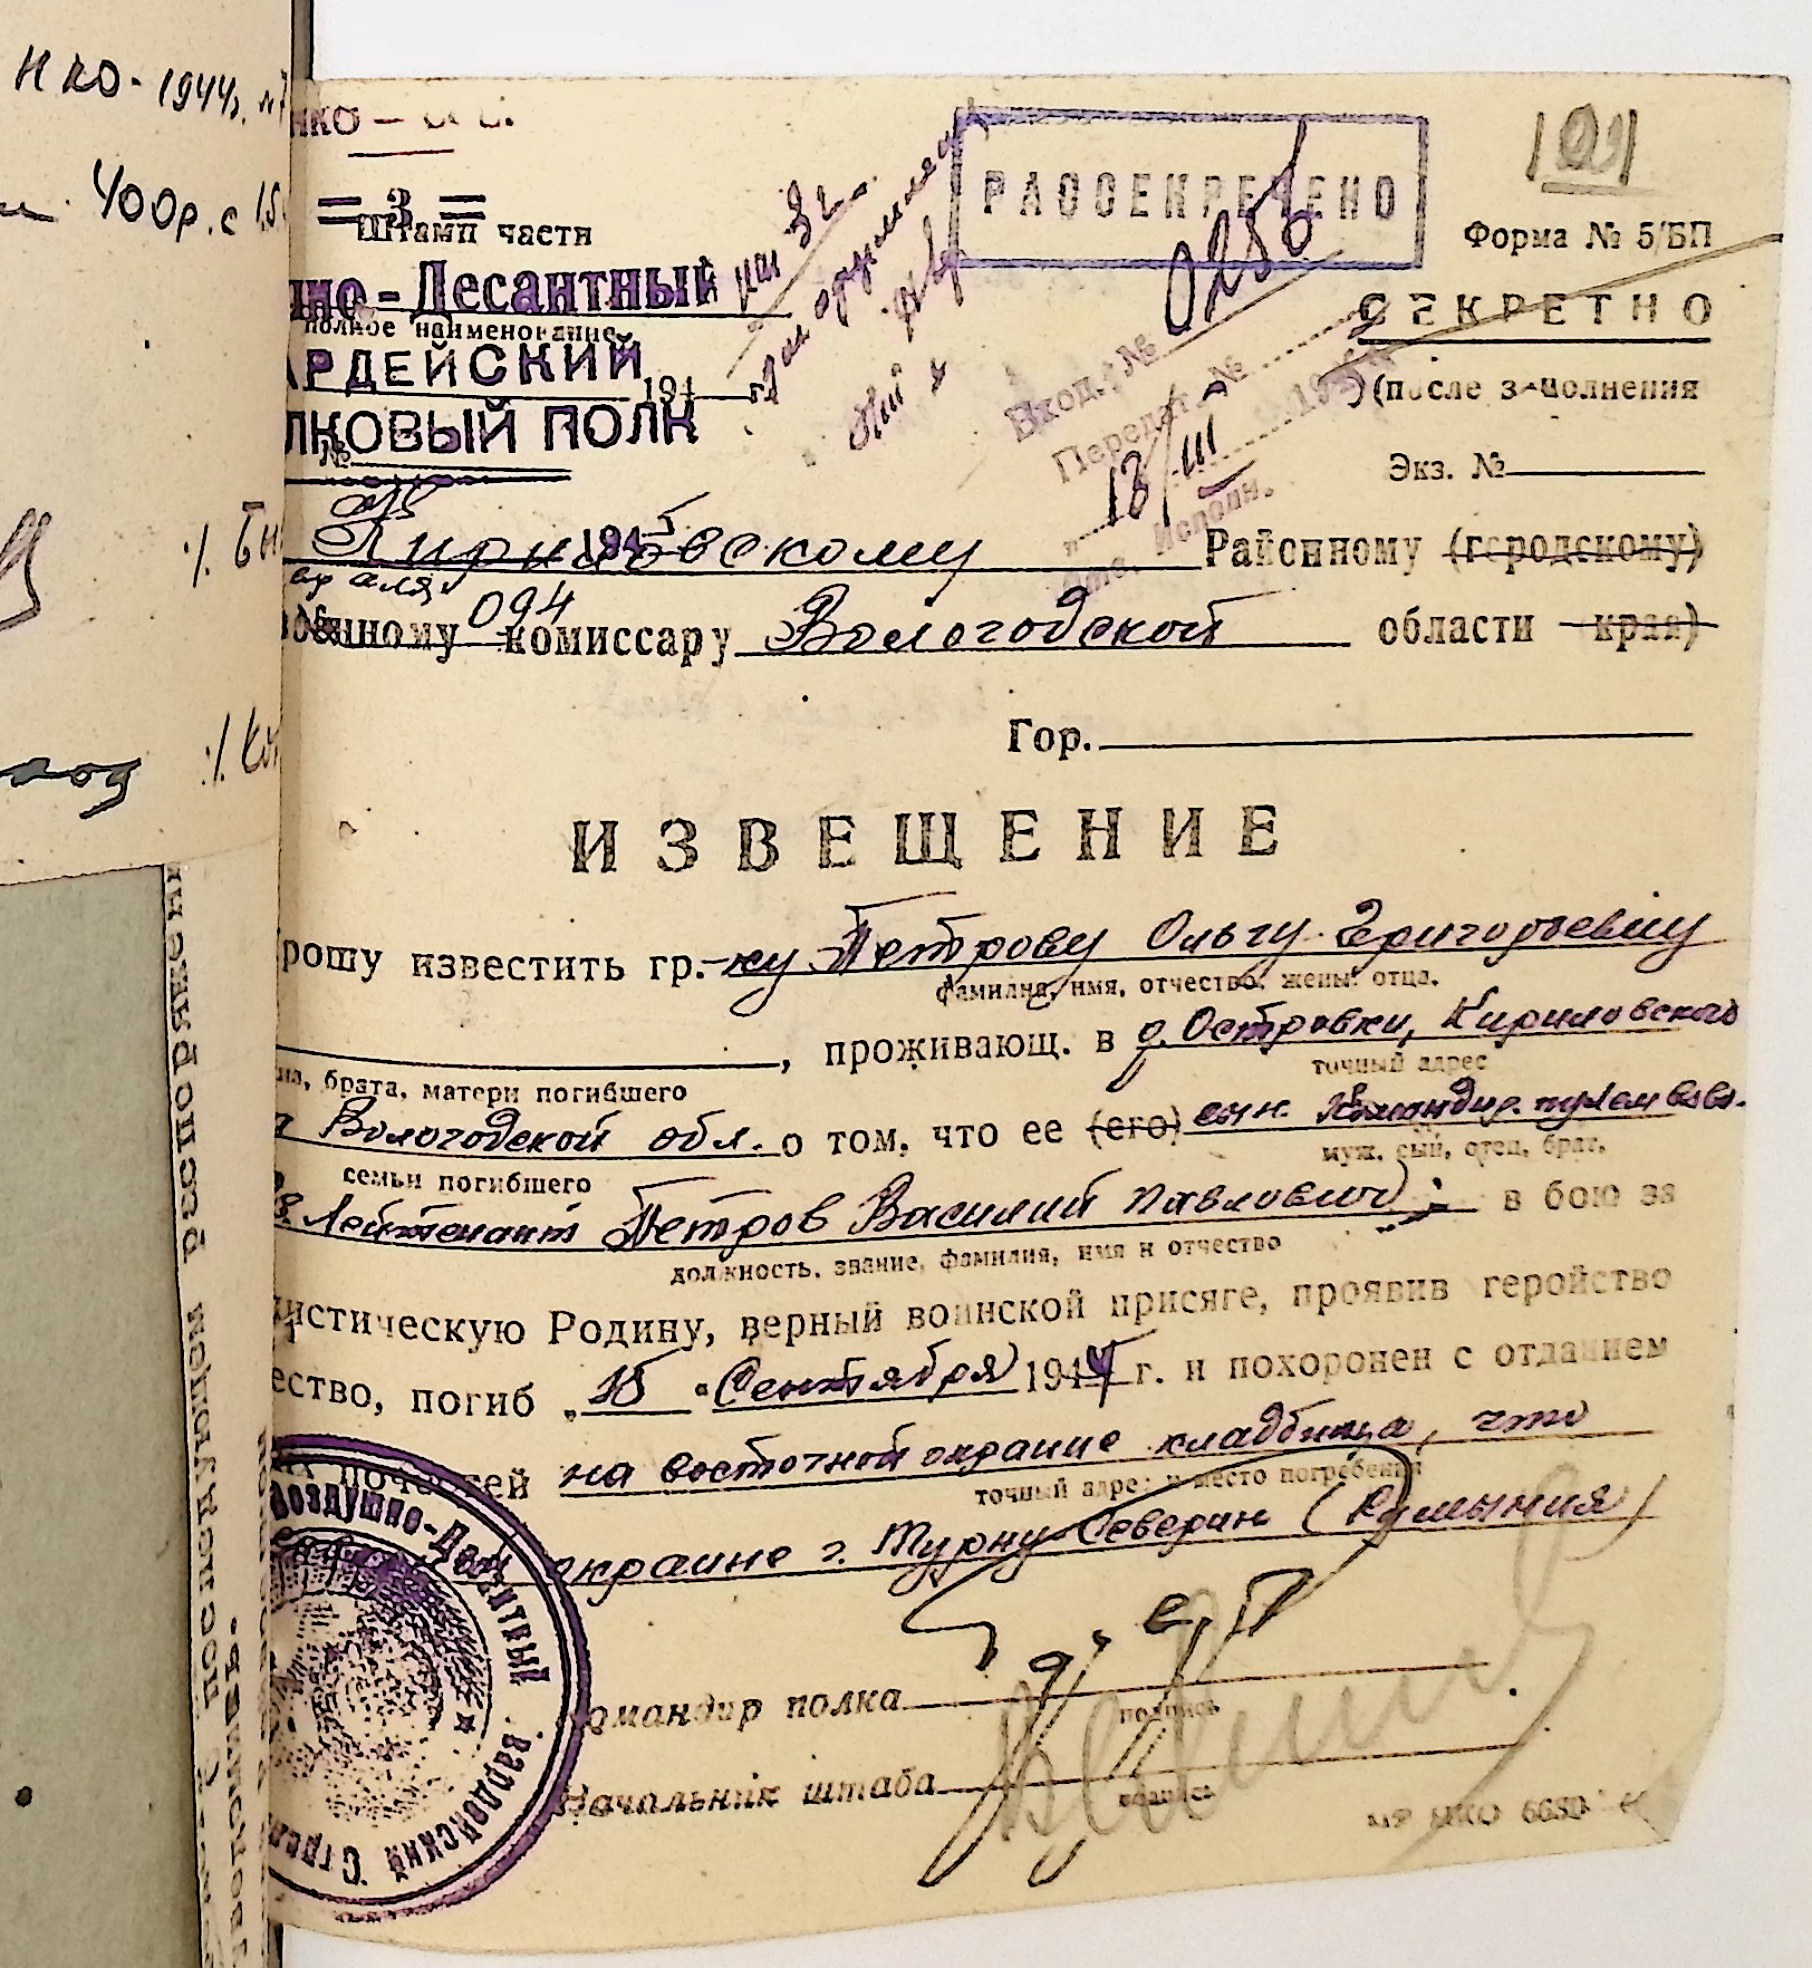 НКО - 1944г.
400р. с 15
НКО
= 3 =
Штамп части
но-Десантный
полное наименование
АРДЕЙСКИЙ
194 г.
ЛКОВЫЙ ПОЛК
№
РАССЕКРЕЧЕНО
0256
Вход. №
Передат. №
13/III
Исполн.
Форма № 5/БП
СЕКРЕТНО
(после заполнения)
Экз. №
Кириловскому Районному (городскому)
094
военному комиссару Вологодской области края)
Гор.
ИЗВЕЩЕНИЕ
рошу известить гр.-ку Петрову Ольгу Григорьевну
фамилия, имя, отчество: жены: отца.
, проживающ. в д. Островки, Кириловского
на, брата, матери погибшего
точный адрес
Вологодской обл. о том, что ее (его) сын. Командир. пулем взво.
семьи погибшего
муж, сын, отец, брат,
Лейтенант Петров Василий Павлович в бою за
должность, звание, фамилия, имя и отчество
листическую Родину, верный воинской присяге, проявив геройство
ество, погиб „15" Сентября 1944 г. и похоронен с отданием
почестей на восточной окраине кладбища, что
точный адрес и место погребения
окраине г. Турну-Северин (Румыния)
Воздушно-Десантный Гвардейский Стрел
Командир полка
подпись
Начальник штаба
подпись